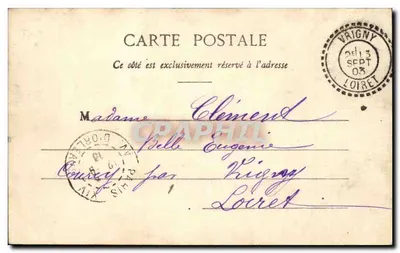 CARTE POSTALE
Ce côté est exclusivement réservé à l'adresse
VRIGNY
13
SEPT
03
LOIRET
Madame Clément
Belle Eugenie
par Vrigny
Loiret
PARIS XIV
AV. D'ORLEANS